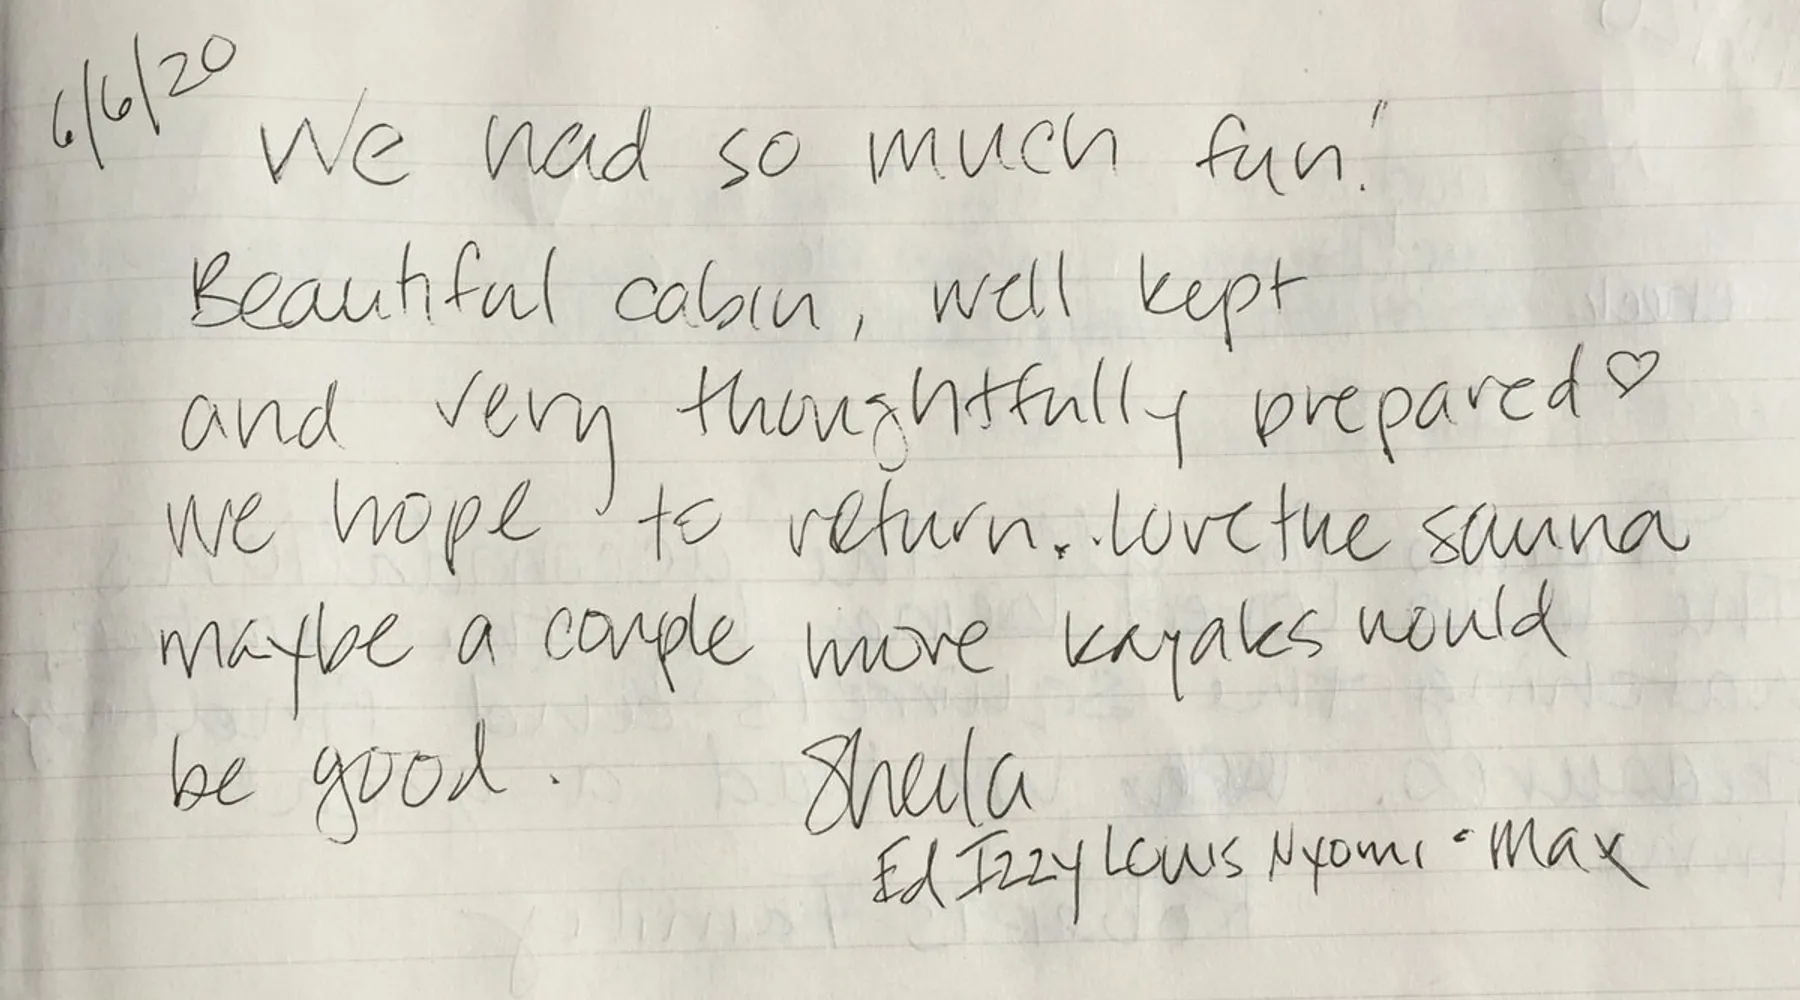 6/6/20
We had so much fun!
Beautiful cabin, well kept
and very thoughtfully prepared ♡
we hope to return.. love the sauna
maybe a couple more kayaks would
be good. Sheila
Ed Izzy Louis Nyomi - Max